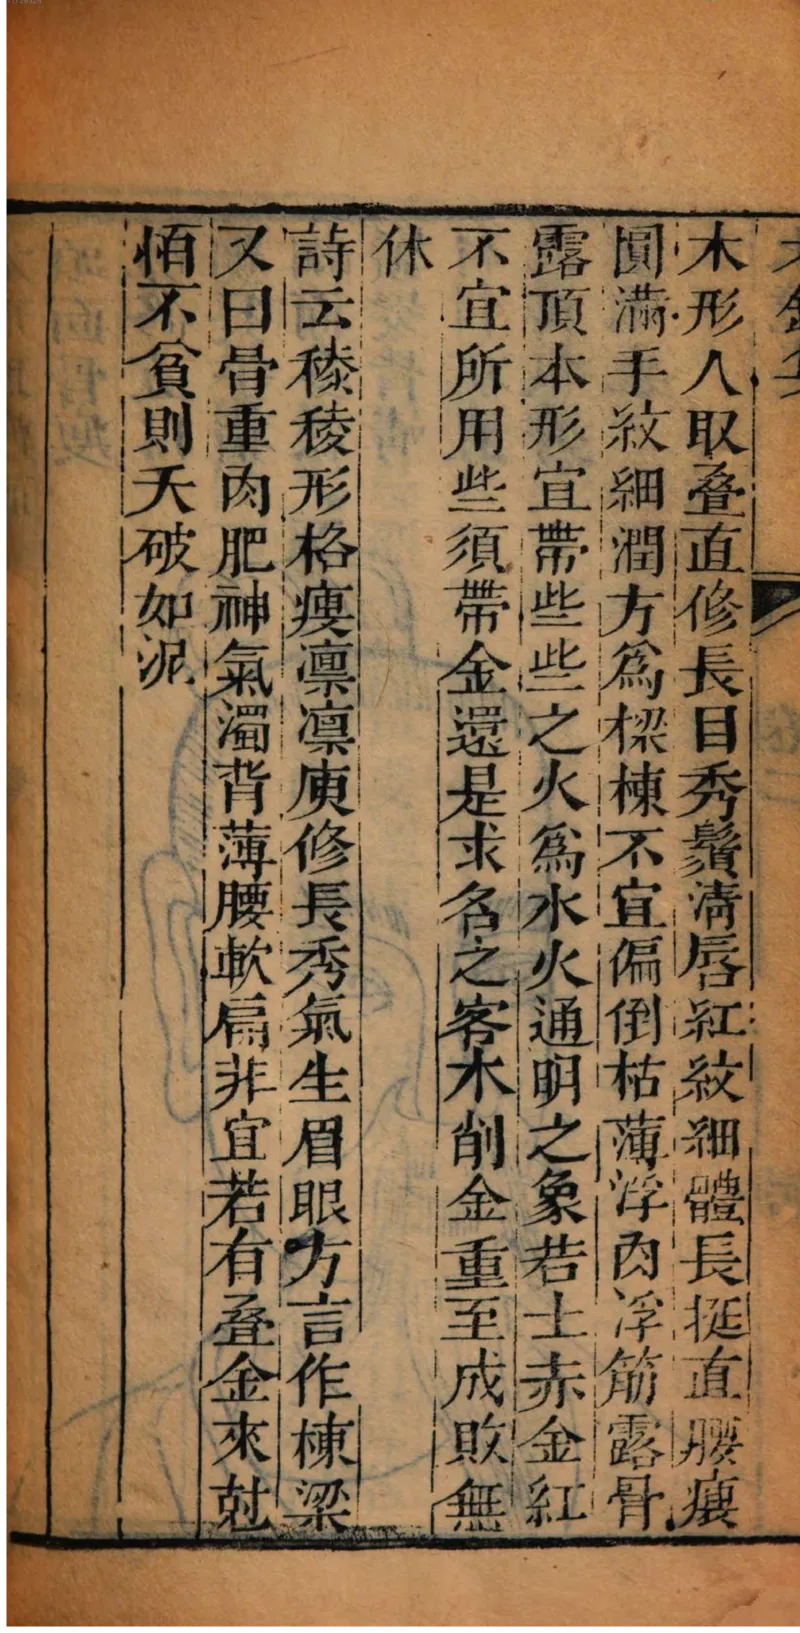 木形人取叠直修長目秀鬚清唇紅紋細體長挺直腰瘦
圓滿手紋細潤方爲樑棟不宜偏倒枯薄浮肉浮筋露骨
露頂本形宜帶些些之火爲水火通明之象若土赤金紅
不宜所用些須帶金還是求名之客木削金重至成敗無
休
詩云稜稜形格瘦凛凛庾修長秀氣生眉眼方言作棟梁
又曰骨重肉肥神氣濁背薄腰軟扁非宜若有叠金來尅
怕不貧則夭破如泥